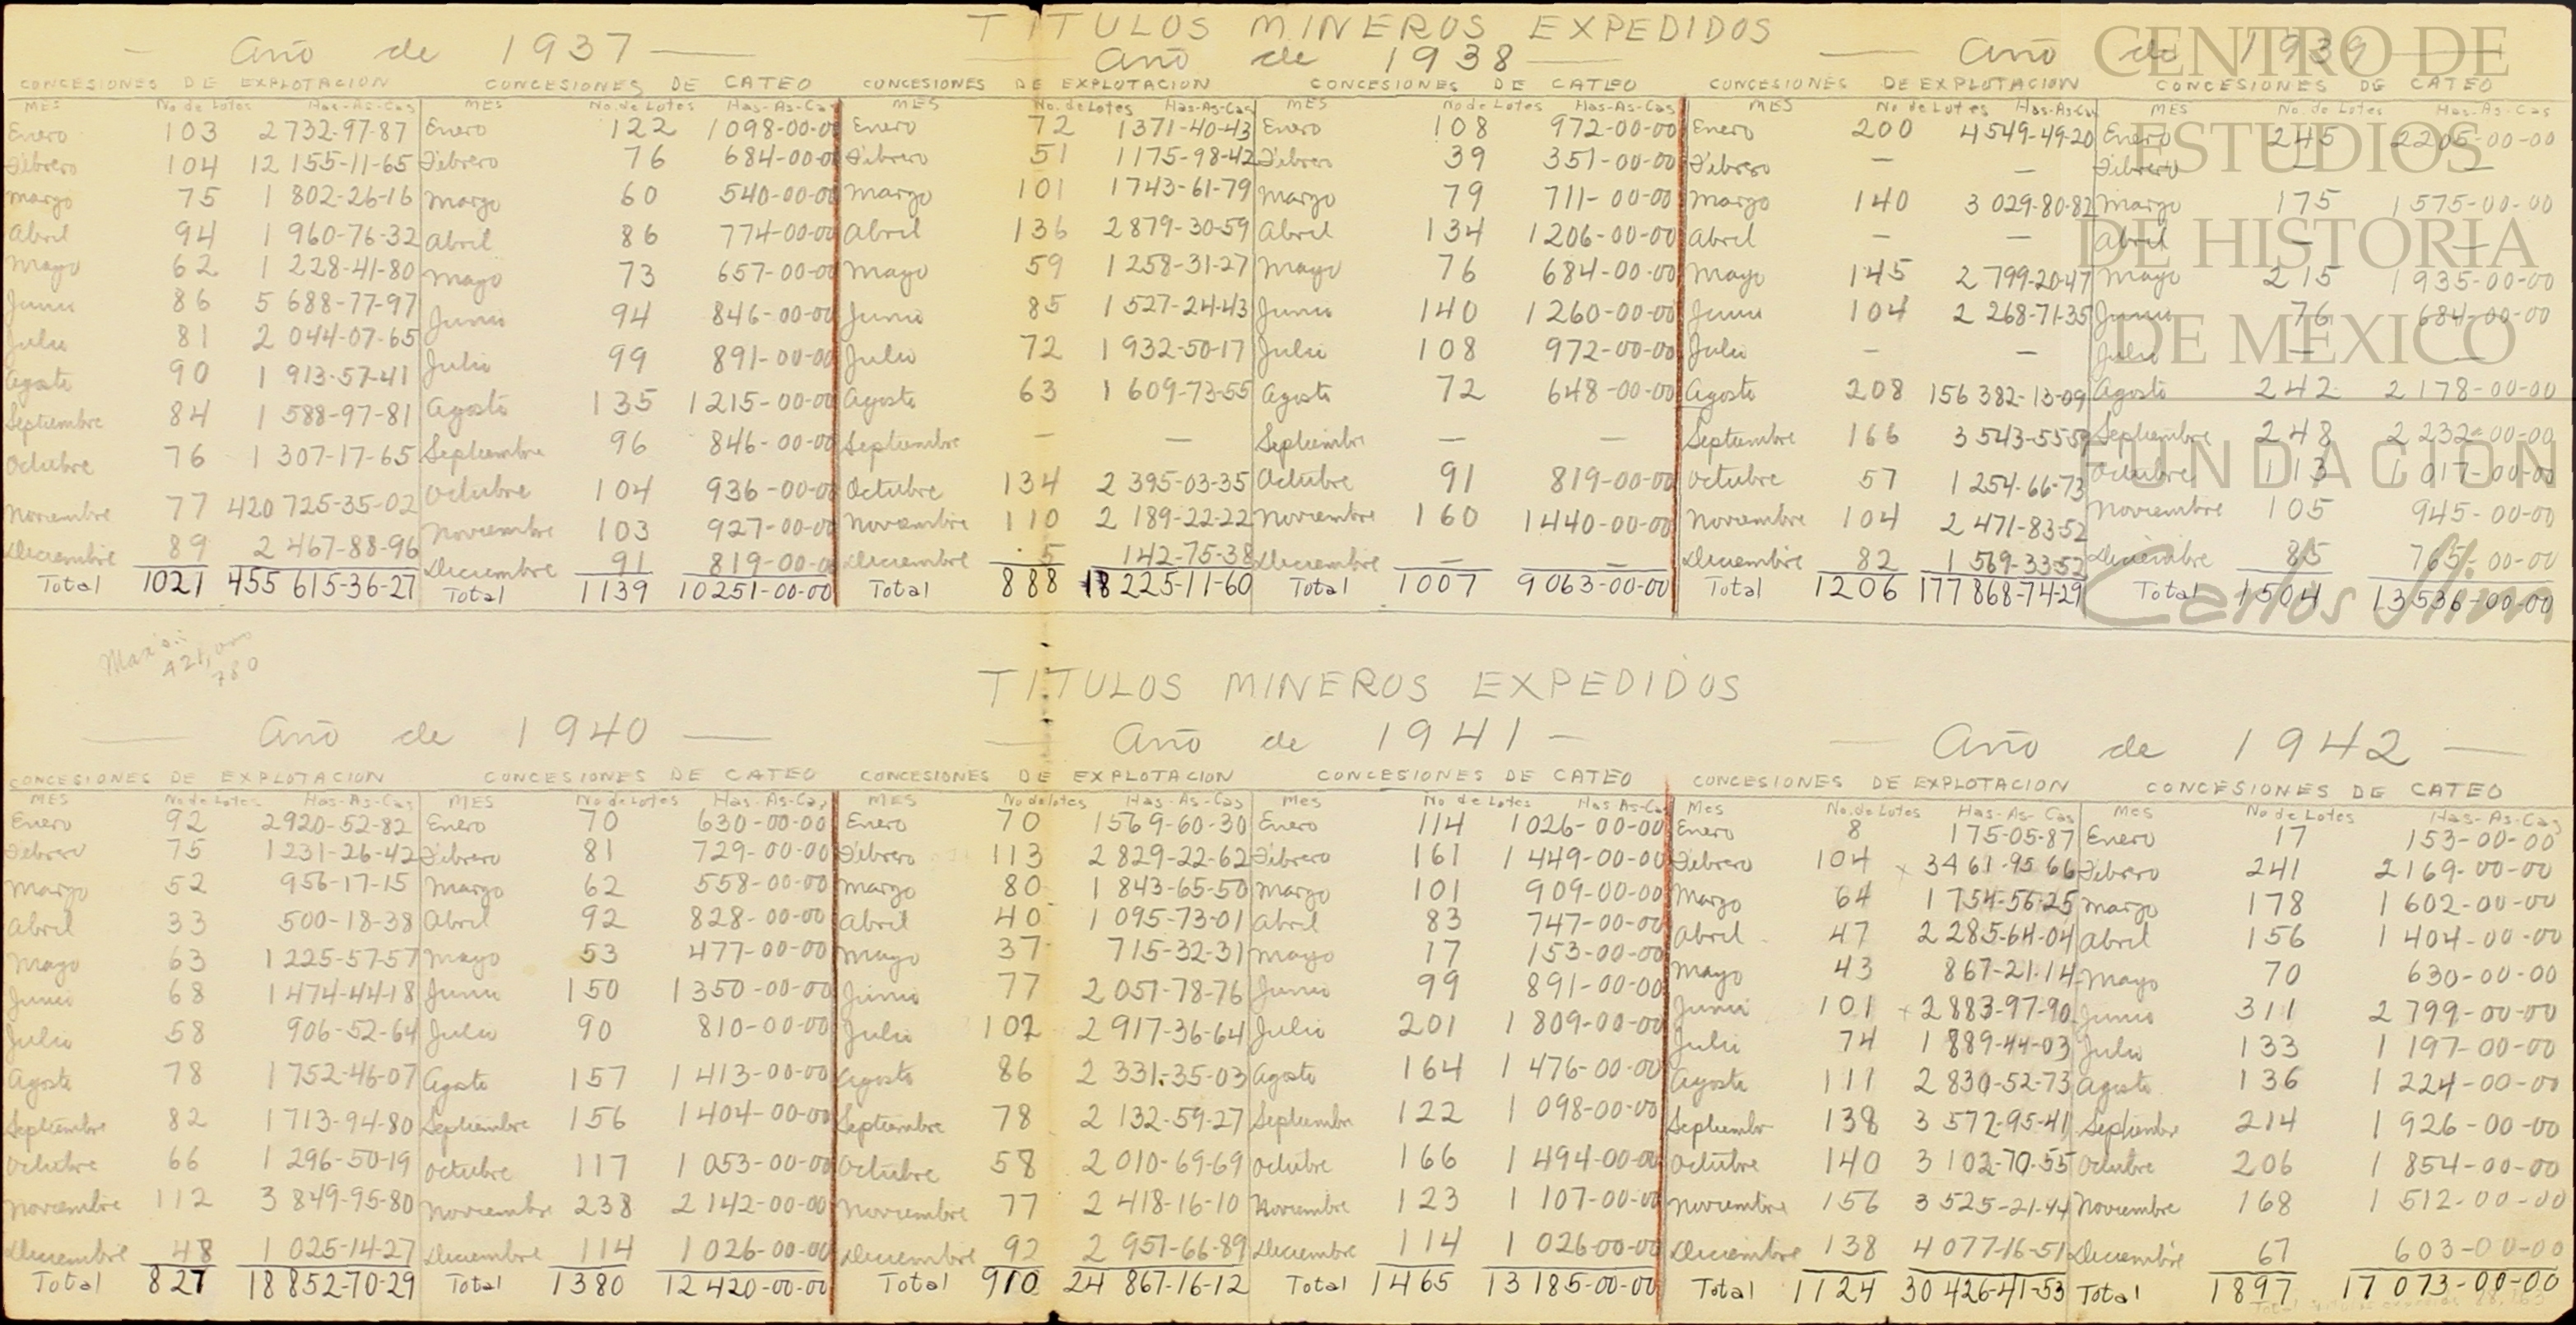 TITULOS MINEROS EXPEDIDOS
Año de 1937 Año de 1938 Año de 1939
CONCESIONES DE EXPLOTACION CONCESIONES DE CATEO CONCESIONES DE EXPLOTACION CONCESIONES DE CATEO CONCESIONES DE EXPLOTACION CONCESIONES DE CATEO
MES No. de Lotes Has-As-Cas MES No. de Lotes Has-As-Cas MES No. de Lotes Has-As-Cas MES No de Lotes Has-As-Cas MES No de Lotes Has-As-Cas MES No. de Lotes Has-As-Cas
Enero 103 2732-97-87 Enero 122 1098-00-00 Enero 72 1371-40-43 Enero 108 972-00-00 Enero 200 4549-49-20 Enero 245 2205-00-00
Febrero 104 12 155-11-65 Febrero 76 684-00-00 Febrero 51 1175-98-42 Febrero 39 351-00-00 Febrero — — Febrero — —
Marzo 75 1 802-26-16 Marzo 60 540-00-00 Marzo 101 1743-61-79 Marzo 79 711-00-00 Marzo 140 3 029-80-82 Marzo 175 1575-00-00
Abril 94 1 960-76-32 Abril 86 774-00-00 Abril 136 2879-30-59 Abril 134 1206-00-00 Abril — — Abril — —
Mayo 62 1 228-41-80 Mayo 73 657-00-00 Mayo 59 1258-31-27 Mayo 76 684-00-00 Mayo 145 2 799-20-47 Mayo 215 1935-00-00
Junio 86 5 688-77-97 Junio 94 846-00-00 Junio 85 1 527-24-43 Junio 140 1260-00-00 Junio 104 2 268-71-35 Junio 76 684-00-00
Julio 81 2 044-07-65 Julio 99 891-00-00 Julio 72 1 932-50-17 Julio 108 972-00-00 Julio — — Julio — —
Agosto 90 1 913-57-41 Agosto 135 1215-00-00 Agosto 63 1 609-73-55 Agosto 72 648-00-00 Agosto 208 156 382-13-09 Agosto 242 2 178-00-00
Septiembre 84 1 588-97-81 Septiembre 96 846-00-00 Septiembre — — Septiembre — — Septiembre 166 3 543-55-59 Septiembre 248 2 232-00-00
Octubre 76 1 307-17-65 Octubre 104 936-00-00 Octubre 134 2 395-03-35 Octubre 91 819-00-00 Octubre 57 1 254-66-73 Octubre 113 1 017-00-00
Noviembre 77 420 725-35-02 Noviembre 103 927-00-00 Noviembre 110 2 189-22-22 Noviembre 160 1440-00-00 Noviembre 104 2 471-83-52 Noviembre 105 945-00-00
Diciembre 89 2 467-88-96 Diciembre 91 819-00-00 Diciembre 5 142-75-38 Diciembre — — Diciembre 82 1 569-33-52 Diciembre 85 765-00-00
Total 1021 455 615-36-27 Total 1139 10251-00-00 Total 888 18 225-11-60 Total 1007 9 063-00-00 Total 1206 177 868-74-29 Total 1504 13 536-00-00
421,
780
TITULOS MINEROS EXPEDIDOS
Año de 1940 Año de 1941 Año de 1942
CONCESIONES DE EXPLOTACION CONCESIONES DE CATEO CONCESIONES DE EXPLOTACION CONCESIONES DE CATEO CONCESIONES DE EXPLOTACION CONCESIONES DE CATEO
MES No de Lotes Has-As-Cas MES No de Lotes Has-As-Cas MES No de lotes Has-As-Cas Mes No de Lotes Has As-Cas Mes No. de Lotes Has-As-Cas Mes No de Lotes Has-As-Cas
Enero 92 2920-52-82 Enero 70 630-00-00 Enero 70 1569-60-30 Enero 114 1026-00-00 Enero 8 175-05-87 Enero 17 153-00-00
Febrero 75 1231-26-42 Febrero 81 729-00-00 Febrero 113 2 829-22-62 Febrero 161 1 449-00-00 Febrero 104 x 3461-95 66 Febrero 241 2169-00-00
Marzo 52 956-17-15 Marzo 62 558-00-00 Marzo 80 1 843-65-50 Marzo 101 909-00-00 Marzo 64 1 754-56-25 Marzo 178 1 602-00-00
Abril 33 500-18-38 Abril 92 828-00-00 Abril 40 1 095-73-01 Abril 83 747-00-00 Abril 47 2 285-64-04 Abril 156 1 404-00-00
Mayo 63 1225-57-57 Mayo 53 477-00-00 Mayo 37 715-32-31 Mayo 17 153-00-00 Mayo 43 867-21-14 Mayo 70 630-00-00
Junio 68 1474-44-18 Junio 150 1350-00-00 Junio 77 2 051-78-76 Junio 99 891-00-00 Junio 101 x 2 883-97-90 Junio 311 2 799-00-00
Julio 58 906-52-64 Julio 90 810-00-00 Julio 102 2 917-36-64 Julio 201 1 809-00-00 Julio 74 1 889-44-03 Julio 133 1 197-00-00
Agosto 78 1752-46-07 Agosto 157 1 413-00-00 Agosto 86 2 331-35-03 Agosto 164 1 476-00-00 Agosto 111 2 830-52-73 Agosto 136 1 224-00-00
Septiembre 82 1713-94-80 Septiembre 156 1404-00-00 Septiembre 78 2 132-59-27 Septiembre 122 1 098-00-00 Septiembre 138 3 572-95-41 Septiembre 214 1 926-00-00
Octubre 66 1 296-50-19 Octubre 117 1 053-00-00 Octubre 58 2 010-69-69 Octubre 166 1 494-00-00 Octubre 140 3 102-70-55 Octubre 206 1 854-00-00
Noviembre 112 3 849-95-80 Noviembre 238 2 142-00-00 Noviembre 77 2 418-16-10 Noviembre 123 1 107-00-00 Noviembre 156 3 525-21-44 Noviembre 168 1 512-00-00
Diciembre 48 1 025-14-27 Diciembre 114 1 026-00-00 Diciembre 92 2 951-66-89 Diciembre 114 1 026-00-00 Diciembre 138 4 077-16-51 Diciembre 67 603-00-00
Total 827 18 852-70-29 Total 1380 12 420-00-00 Total 910 24 867-16-12 Total 1465 13 185-00-00 Total 1124 30 426-41-53 Total 1897 17 073-00-00
CENTRO DE
ESTUDIOS
DE HISTORIA
DE MEXICO
FUNDACION
Carlos Slim